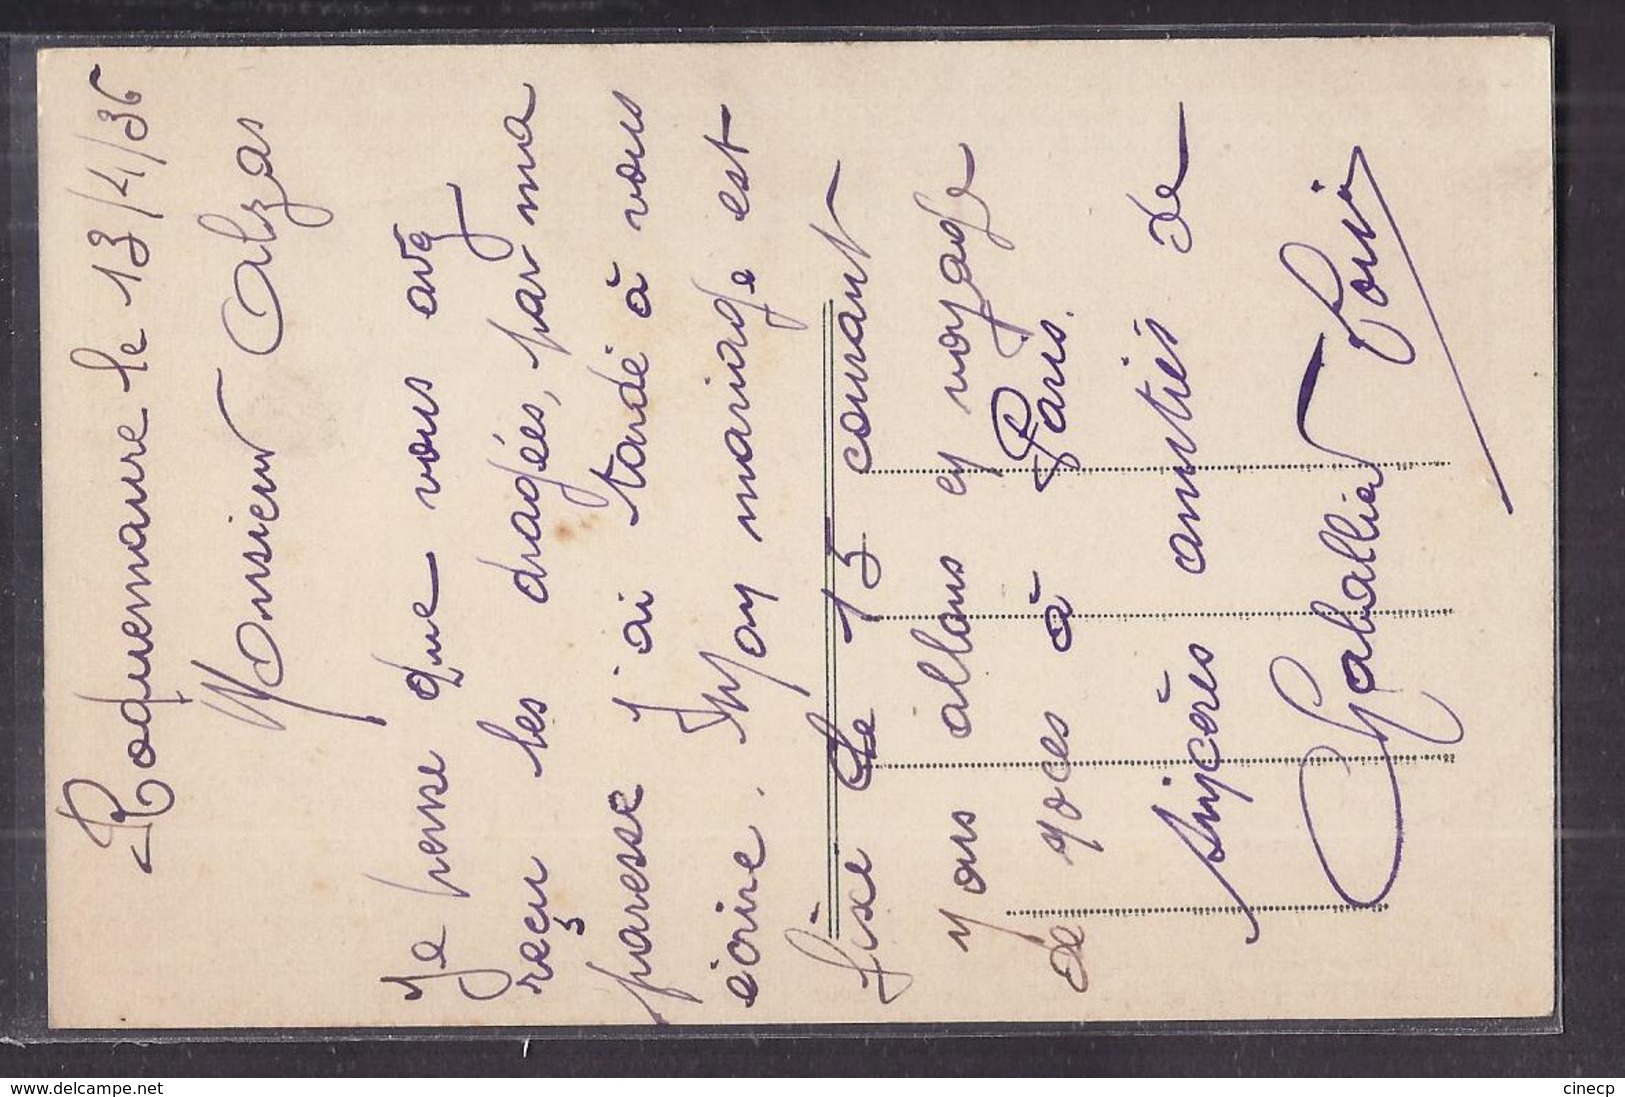 Roquemaure le 13/4/36
Monsieur Calzas
Je pense que vous avez
reçu les dragées, par ma
paresse j'ai tardé à vous
écrire. Mon mariage est
fixé le 15 courant
nous allons en voyage
de noces à Paris.
Sincères amitiés de
Gaballier Louis
www.delcampe.net
cinecp